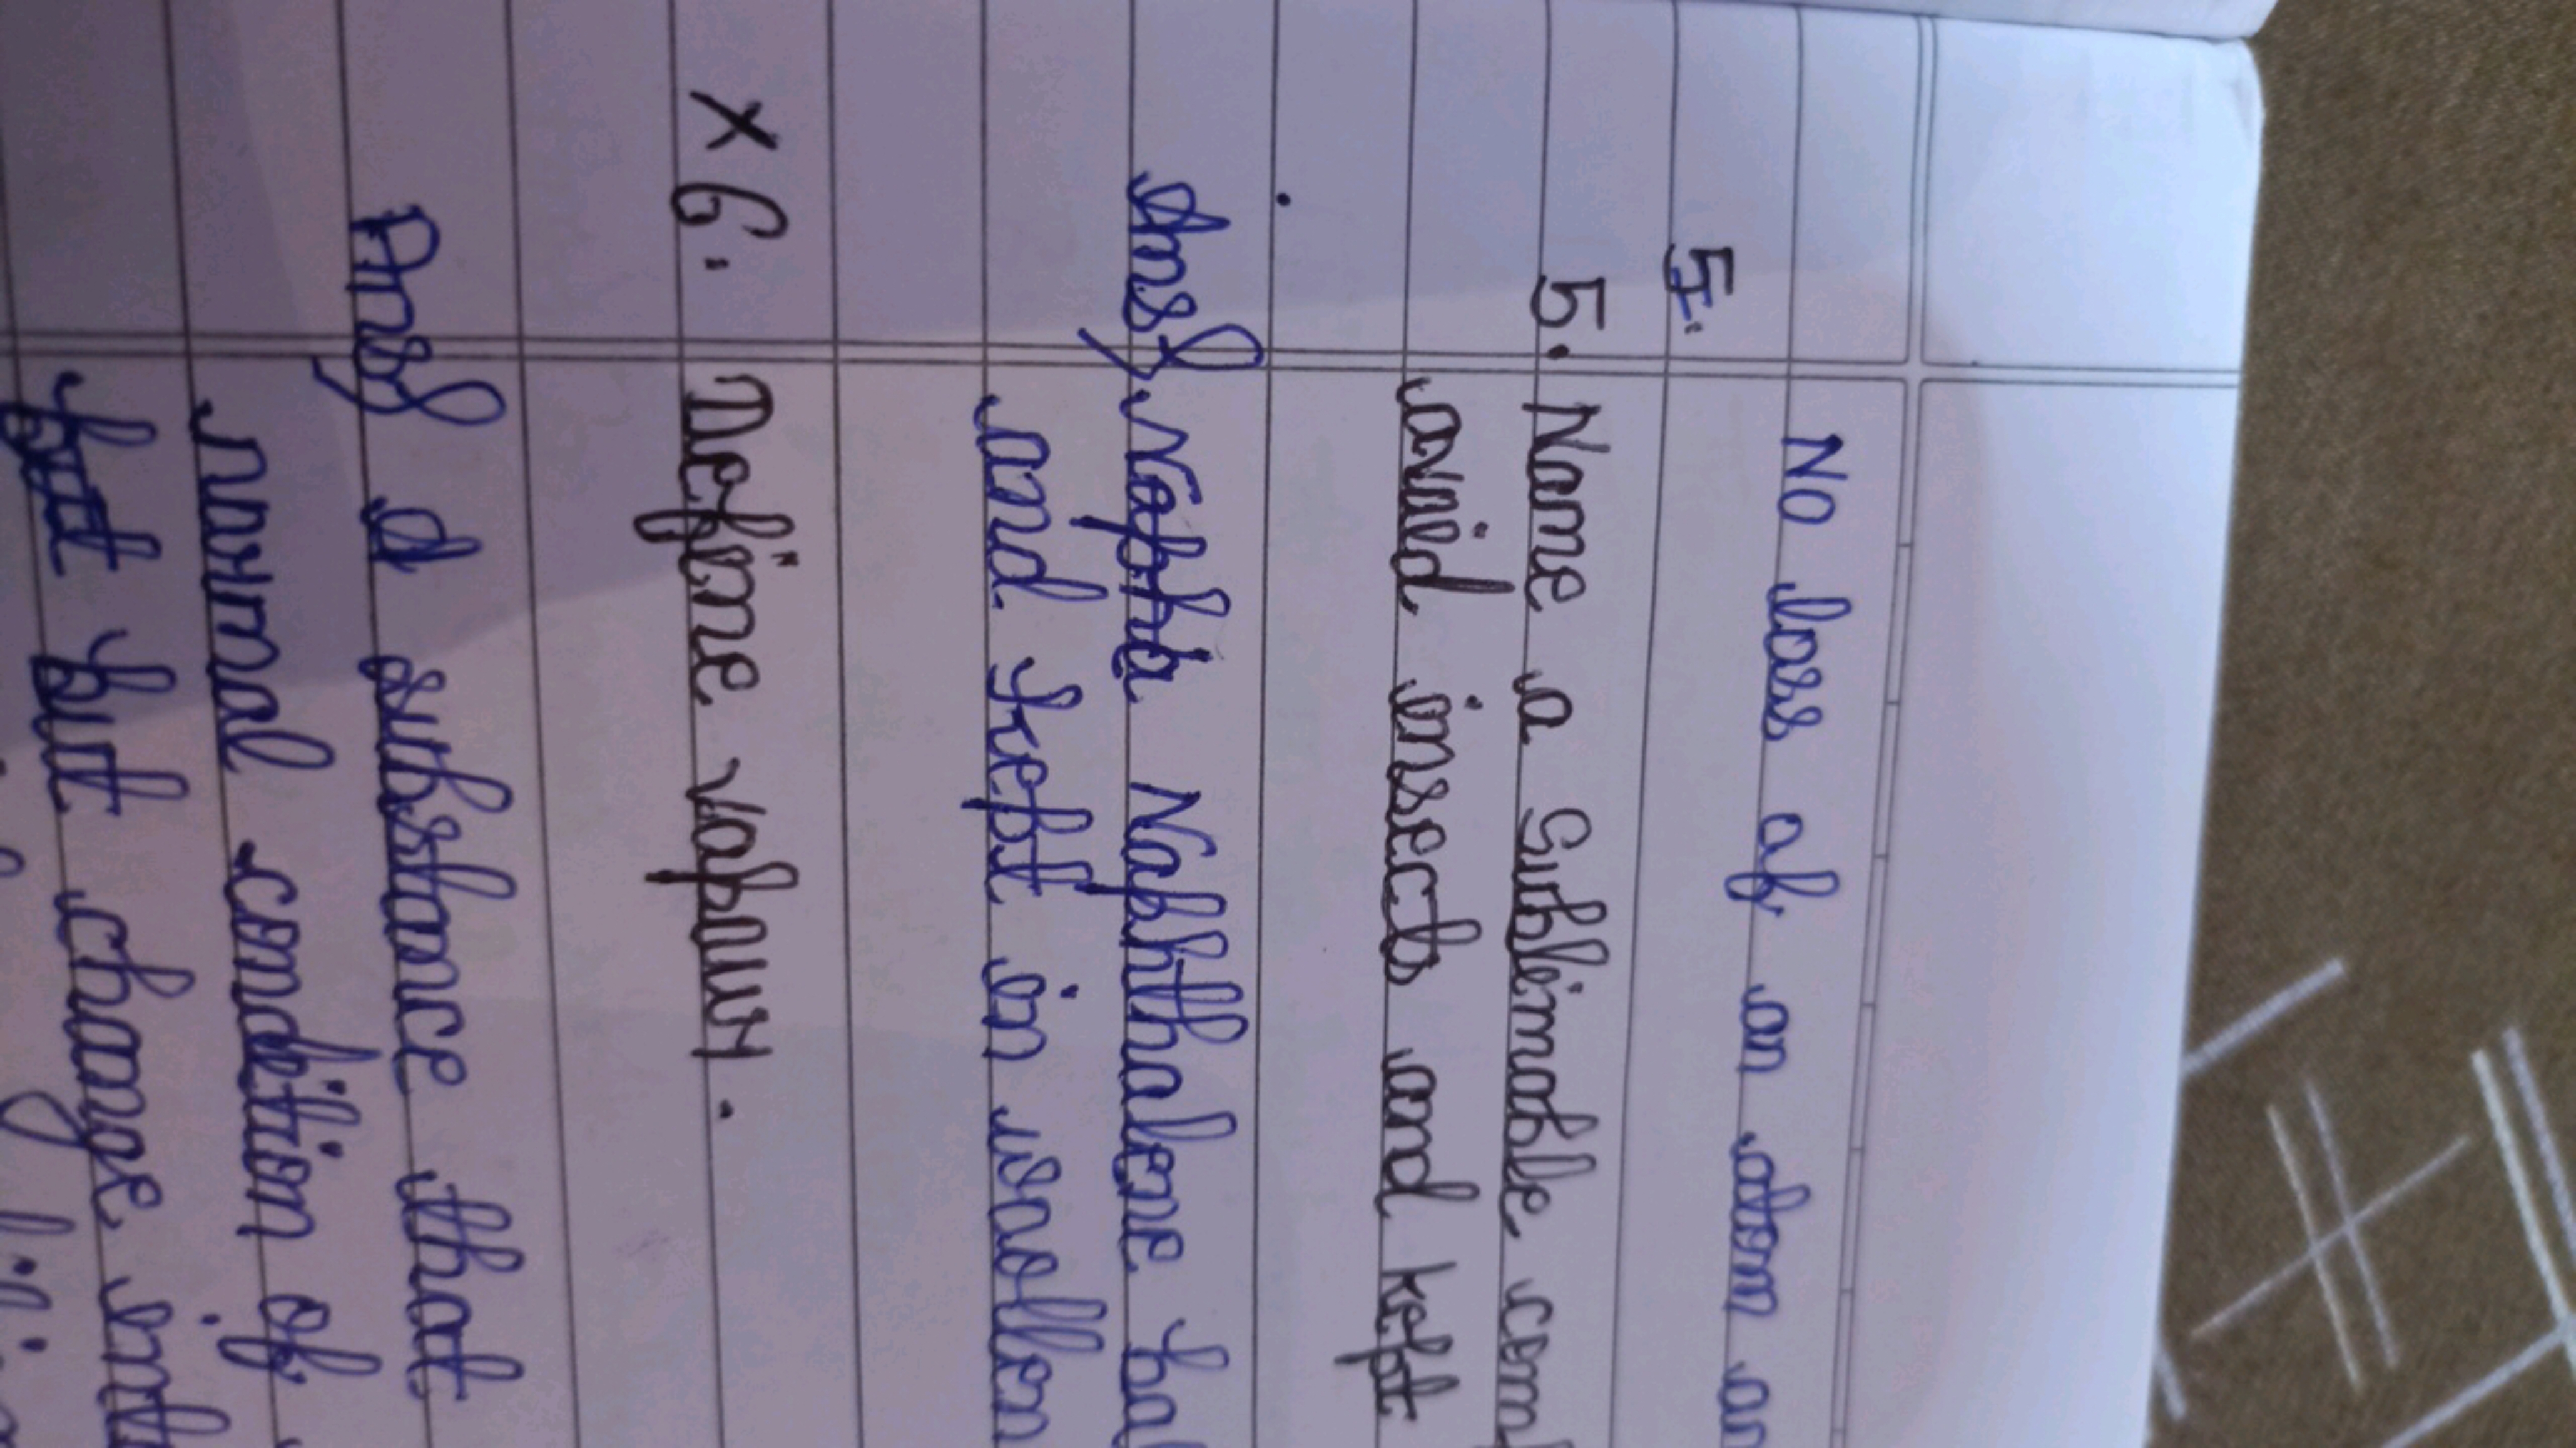 No loss of an atom an
5.
5. Name a Sublimable com
avoid insects and kept
Ans) Napha Naphthalene ba
and kept in woollen
x 6. Define vapour.
Ans) A substance that
normal condition of
but change